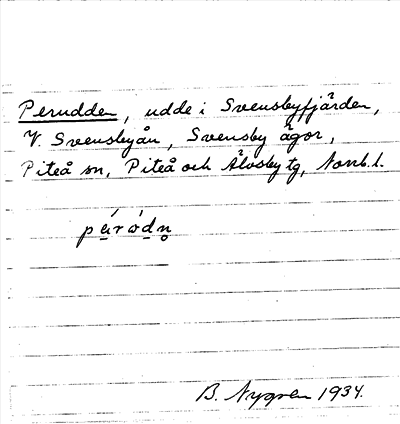 Perudden, udde i Svensbyfjärden,
V. Svensbyån, Svensby ägor,
Piteå sn, Piteå och Älvsby tg, Norrb. l.
pȧ́rȯ́dn̥
B. Nygren 1934.